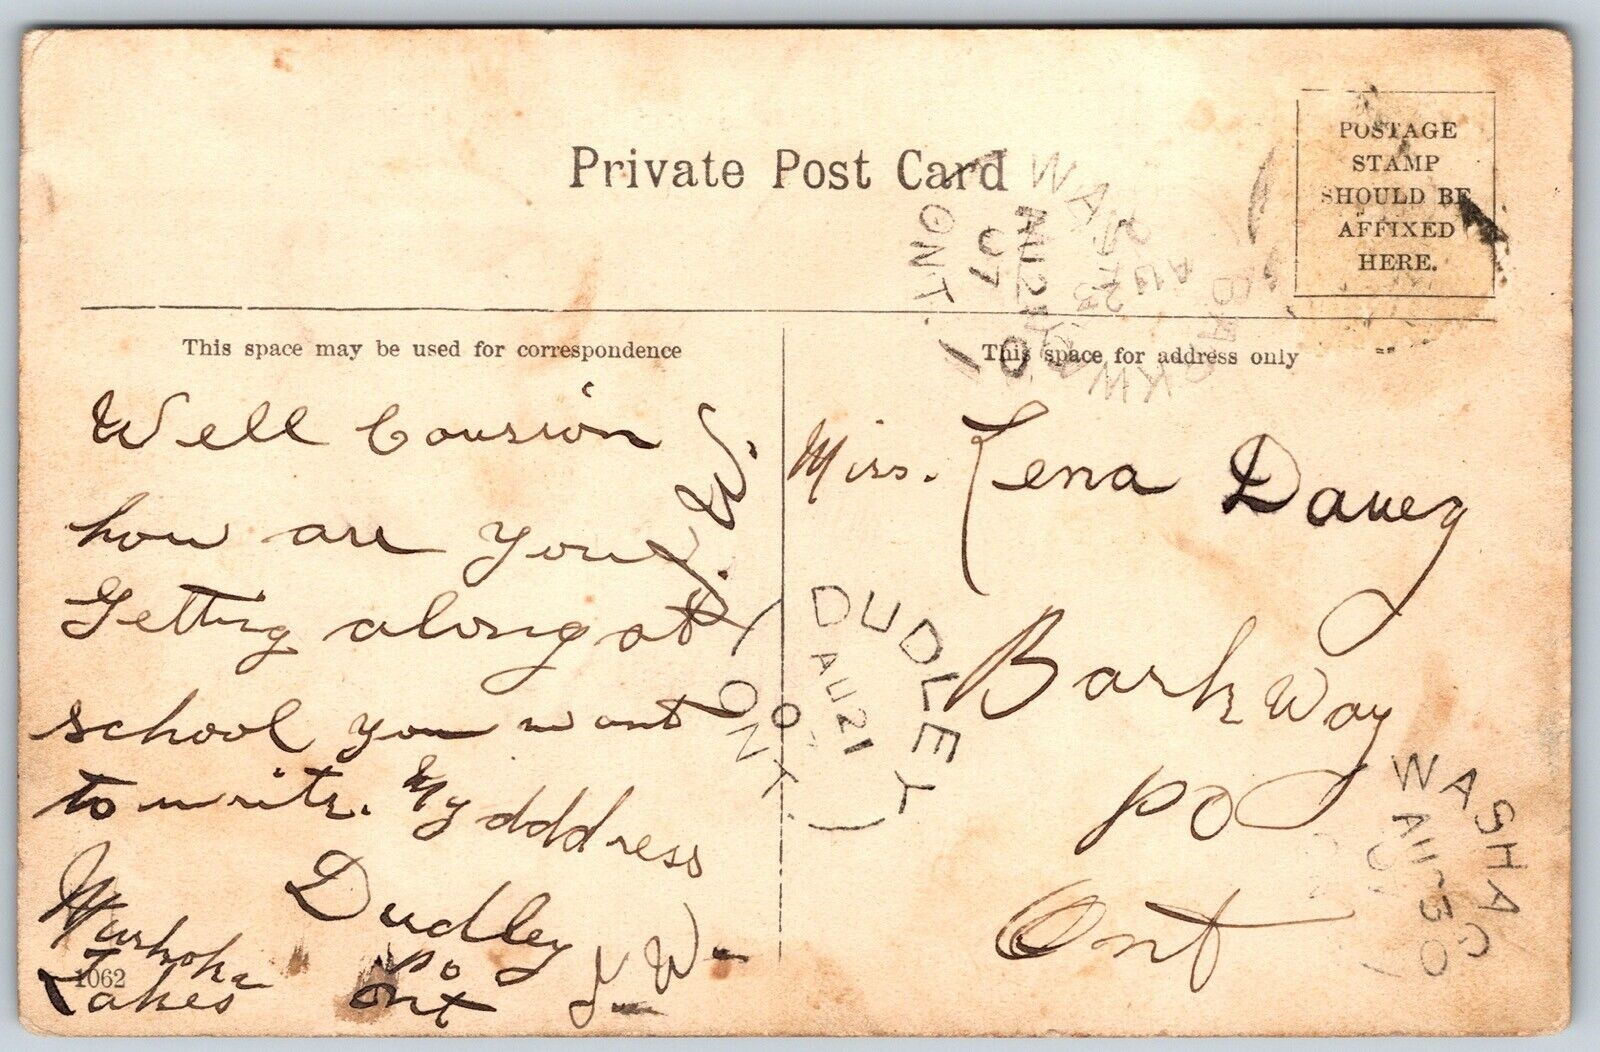 Private Post Card
POSTAGE
STAMP
SHOULD BE
AFFIXED
HERE.
This space may be used for correspondence
Well Cousion
how are you
Getting along at
school you want
to write. My adddress
Dudley
Muskoka
Lakes
PO
Ont
1062
This space for address only
Miss. Lena Davey
Barkway
PO
Ont
DUDLEY
AU 21
07
ONT.
WASHAGO
AU 21
07
ONT.
WASHAGO
AU 30